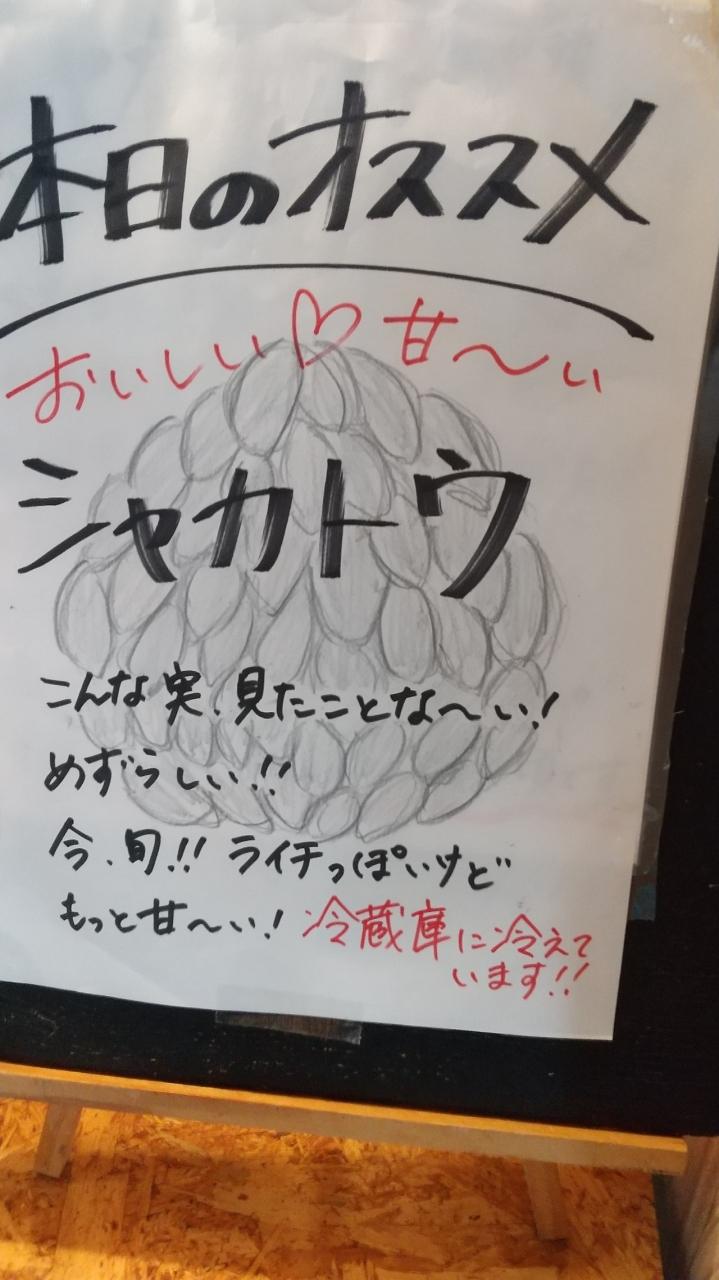 本日のオススメ
おいしい♡甘〜い
シャカトウ
こんな実、見たことな〜い!
めずらしい!!
今、旬!! ライチっぽいけど
もっと甘〜い! 冷蔵庫に冷えて
います!!